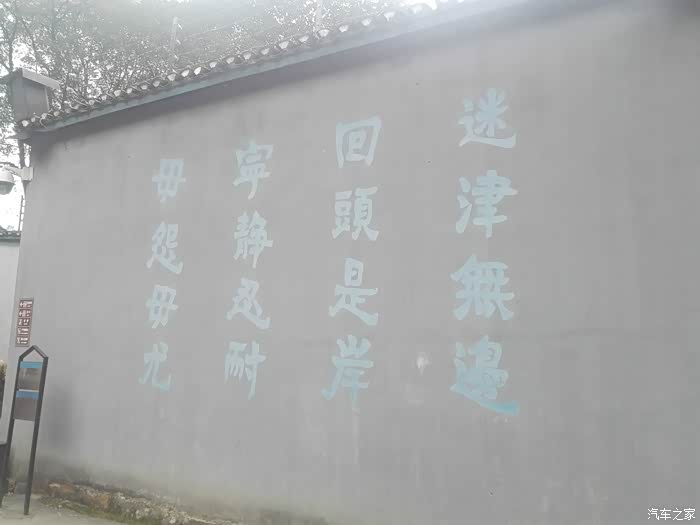 迷津無邊
回頭是岸
寜静忍耐
毋怨毋尤
汽车之家